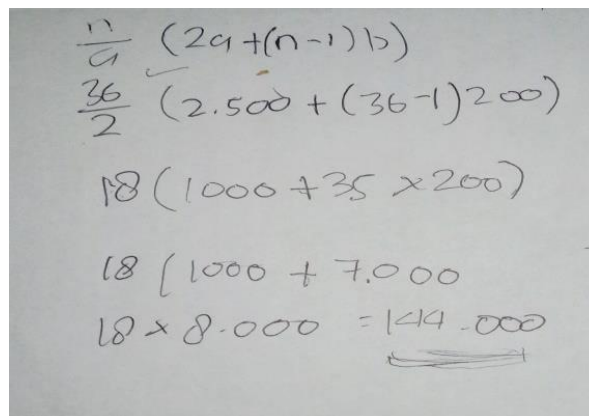 n/a (2a+(n-1)b)
36/2 (2.500 + (36-1)200)
18(1000 + 35 × 200)
18(1000 + 7.000
18 × 8.000 = 144.000